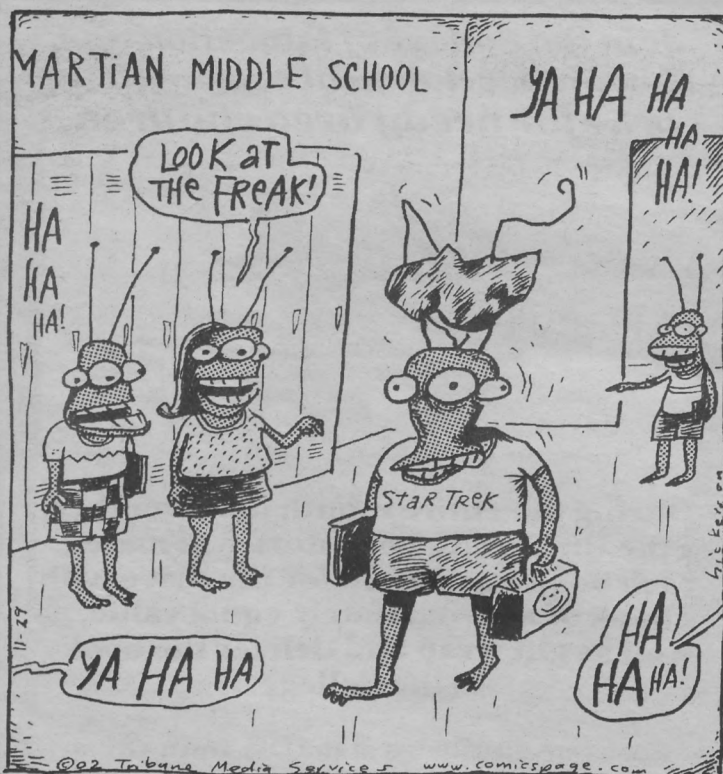 MARTIAN MIDDLE SCHOOL
YA HA HA
HA
HA!
LOOK aT
THE FREAK!
HA
HA
HA!
StaR TReK
11-29
YA HA HA
HA
HA HA!
©02 Tribune Media Services www.comicspage.com